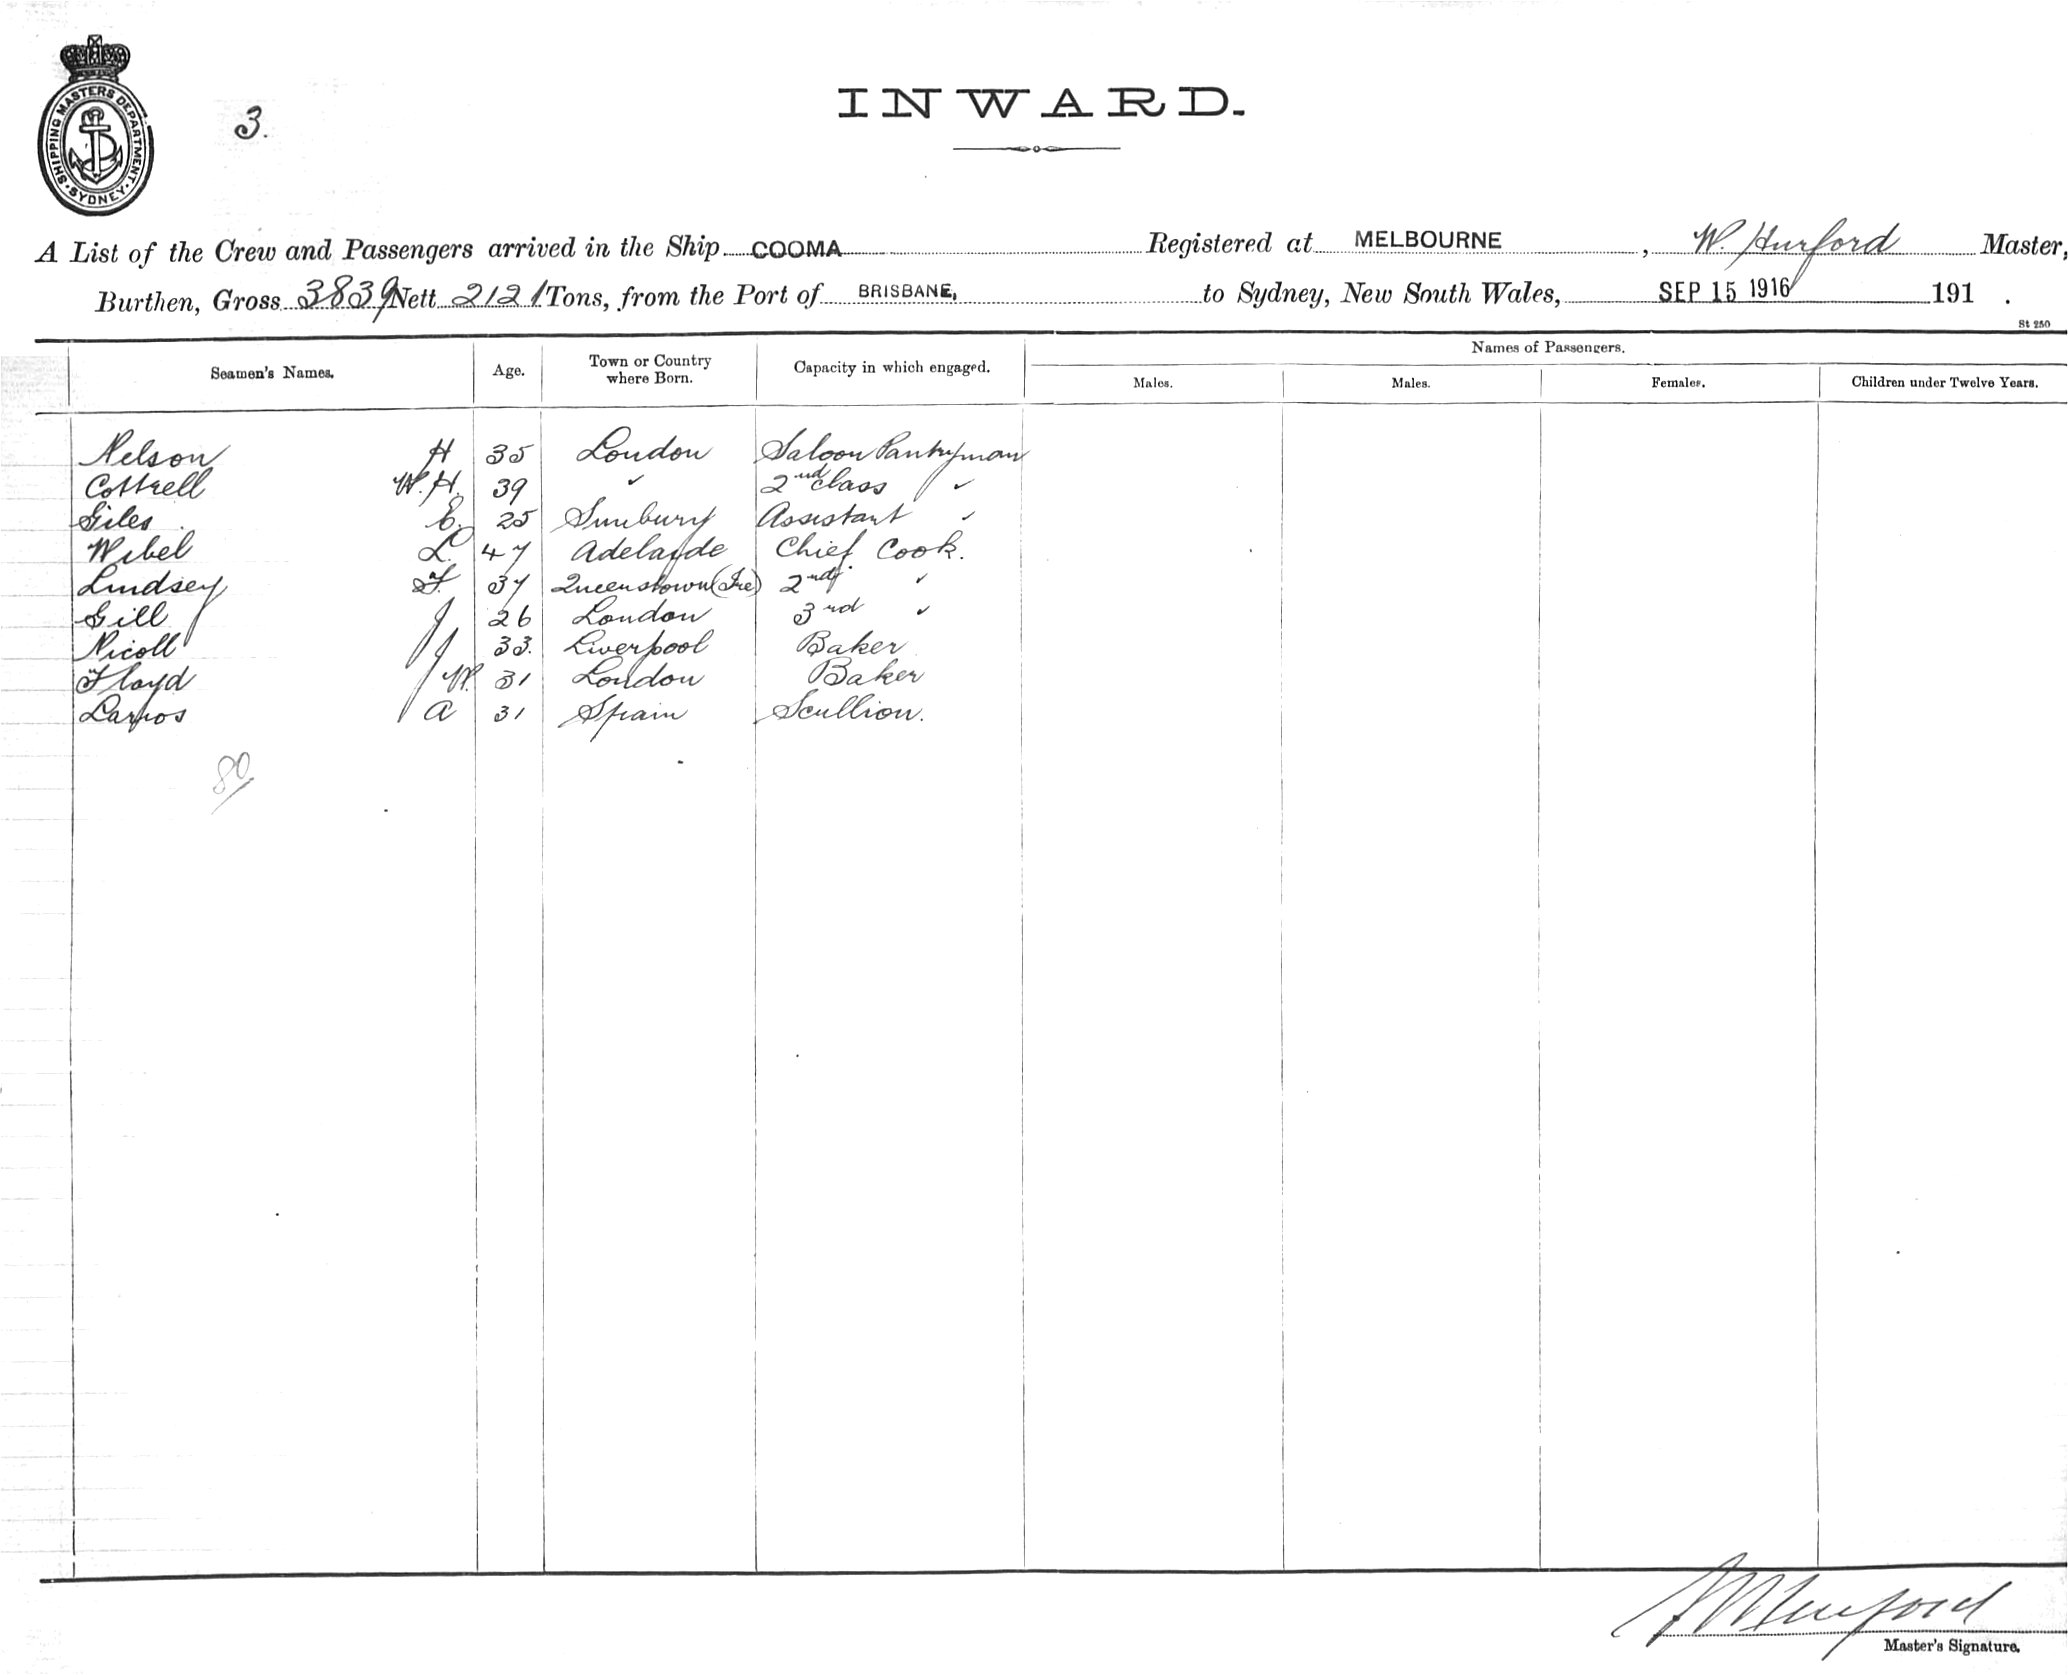 SHIPPING MASTERS DEPARTMENT. SYDNEY.
3.
INWARD.
A List of the Crew and Passengers arrived in the Ship COOMA Registered at MELBOURNE, W. Hurford Master,
Burthen, Gross 3839 Nett 2121 Tons, from the Port of BRISBANE, to Sydney, New South Wales, SEP 15 1916 191 .
St 250
Seamen's Names. Age. Town or Country where Born. Capacity in which engaged. Names of Passengers.
Males. Males. Females. Children under Twelve Years.
Nelson H 35 London Saloon Pantryman
Cottrell W. H. 39 ✓ 2nd Class ✓
Giles E. 25 Sunbury Assistant ✓
Wibel L. 47 Adelaide Chief Cook.
Lindsey F. 37 Queenstown (Ire) 2nd ✓
Gill J 26 London 3rd ✓
Nicoll J 33. Liverpool Baker
Floyd J W. 31 London Baker
Larros A 31 Spain Scullion.
80
W Hurford
Master's Signature.